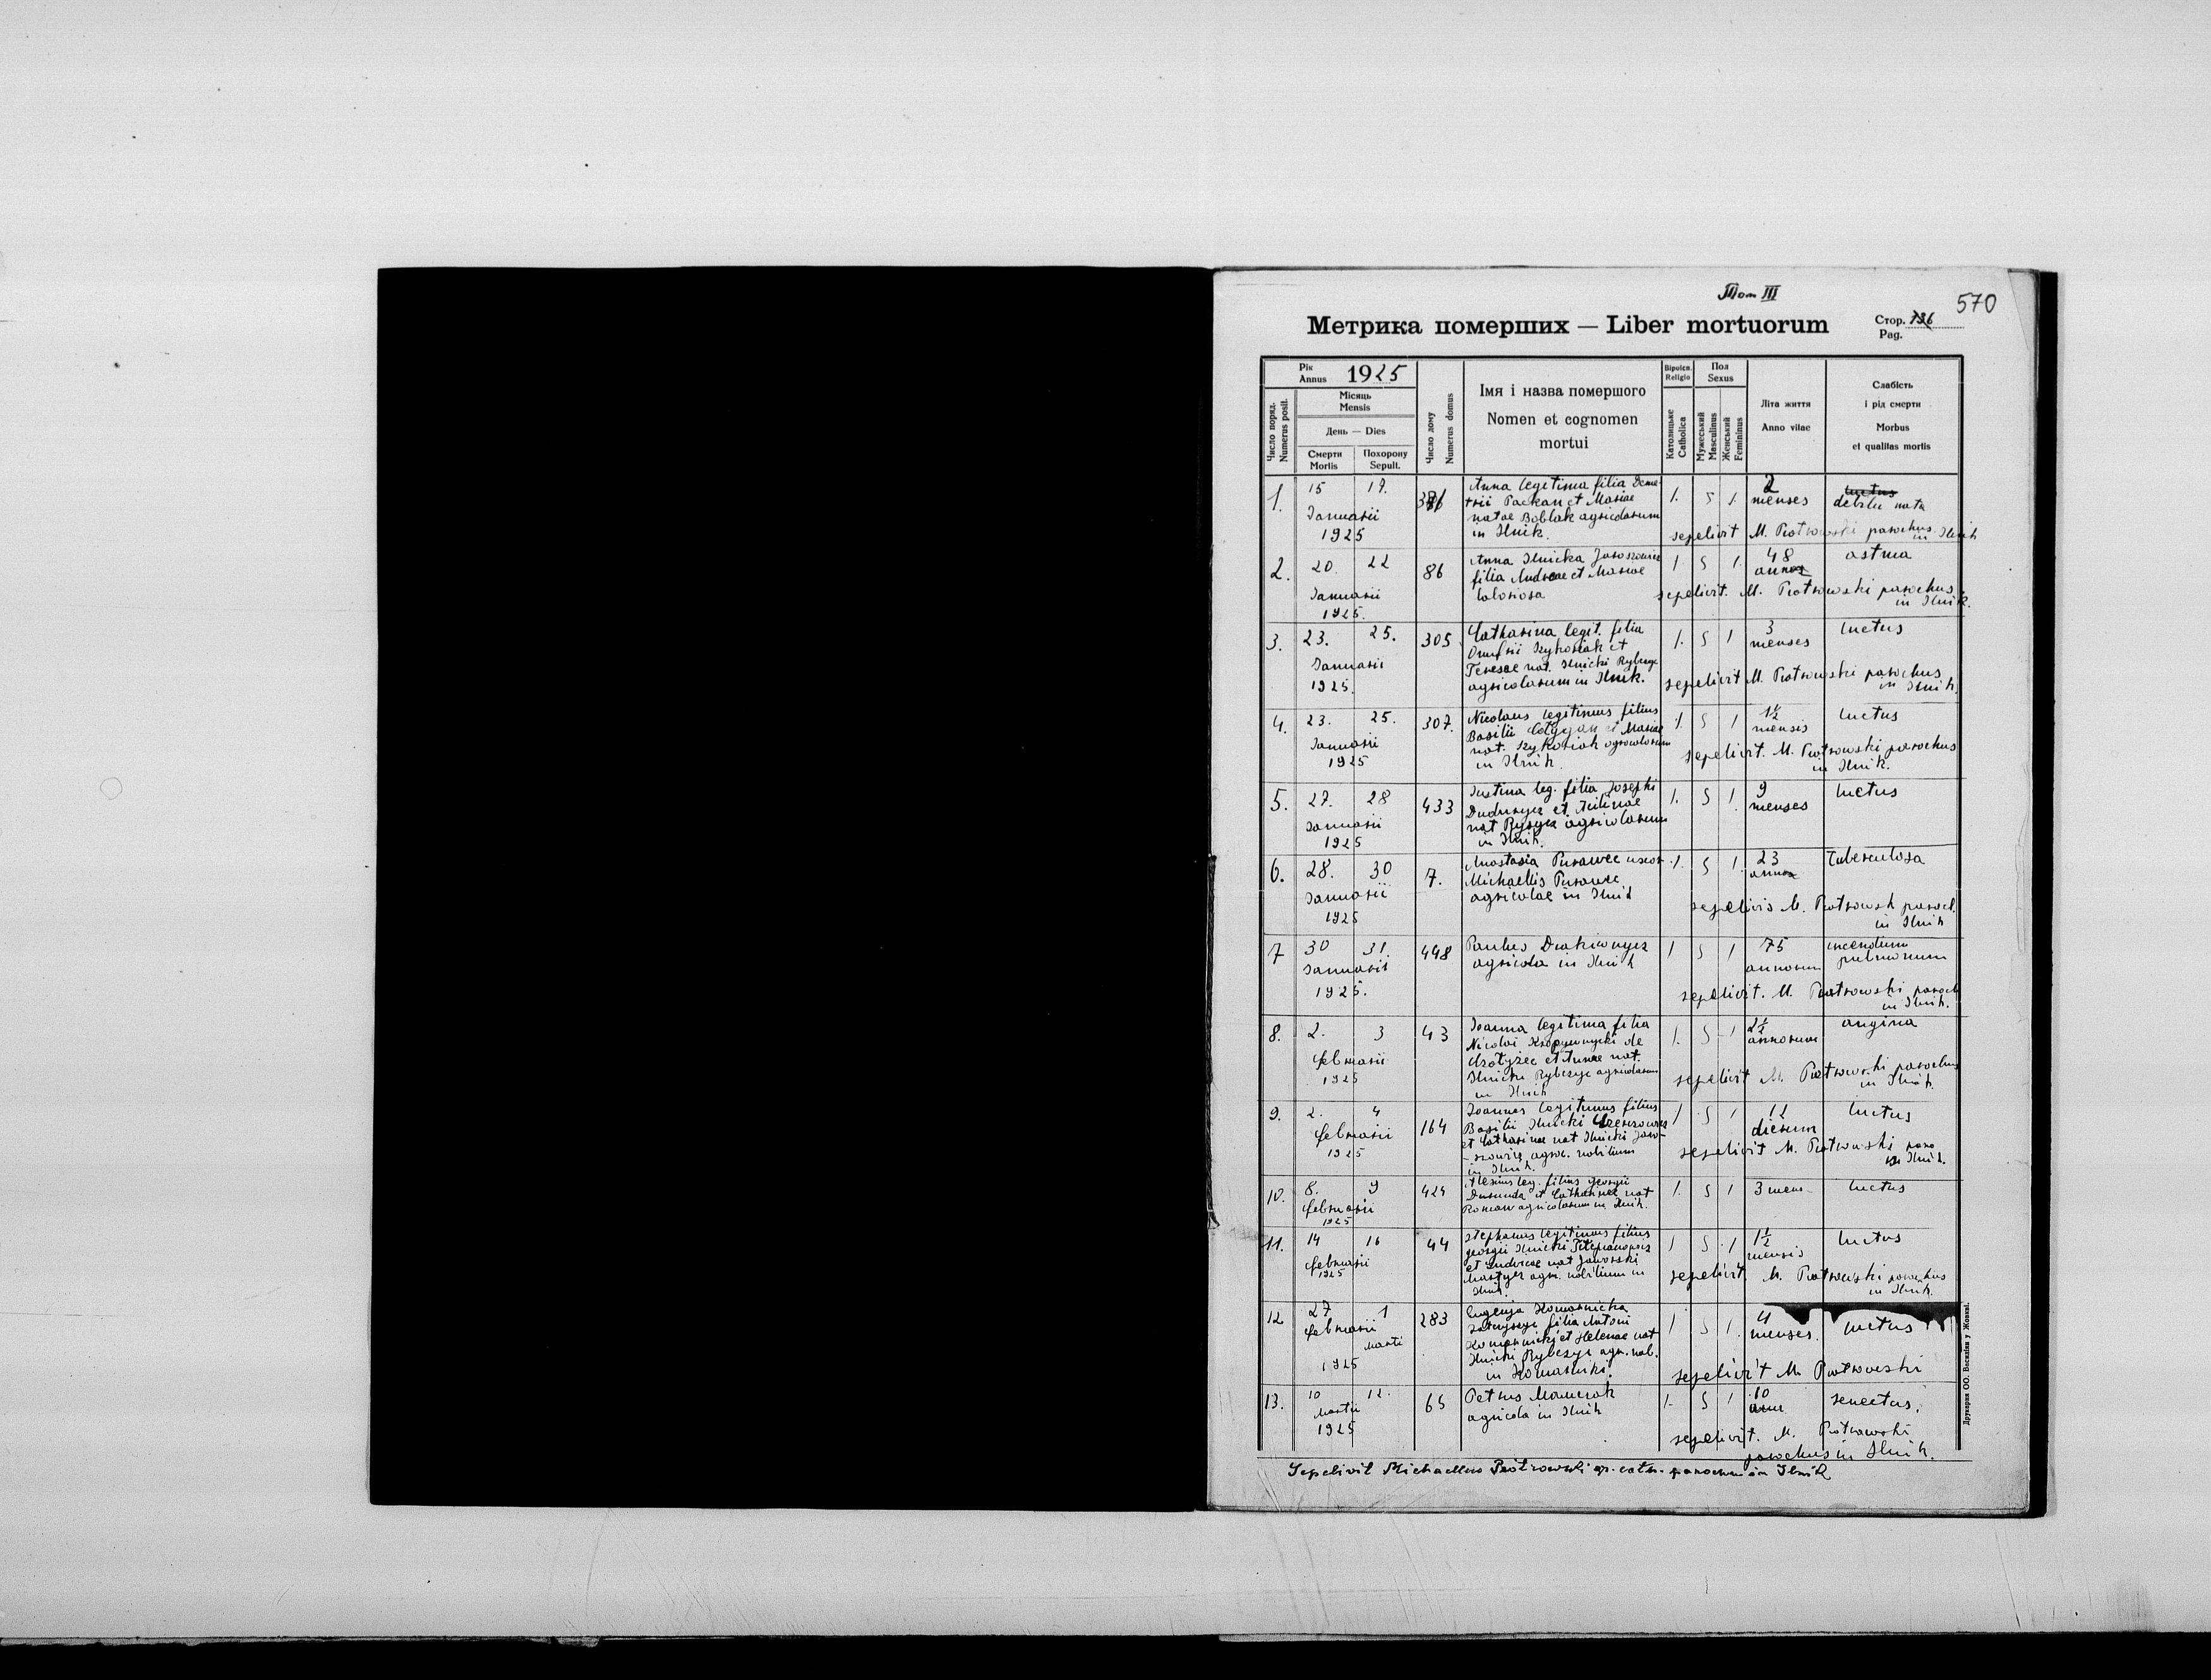 Том III
570
Метрика померших — Liber mortuorum
Стор. 136
Pag.
Рік
Annus 1925
Місяць
Mensis
День — Dies
Смерти
Mortis
Похорону
Sepult.
Число поряд.
Numerus posit.
Число дому
Numerus domus
Імя і назва помершого
Nomen et cognomen
mortui
Віроісп.
Religio
Католицьке
Catholica
Пол
Sexus
Мужеський
Masculinus
Женський
Femininus
Літа життя
Anno vitae
Слабість
і рід смерти
Morbus
et qualitas mortis
1. 15 17. Januarii 1925
Anna legitima filia Deme-
trii Packan et Mariae
natae Boblak agricolarum
in Ilnik.
1. 5 1.
2 menses
debilis nata
sepelivit M. Piotrowski parochus in Ilnik
2. 20. 22 Januarii 1925. 86
Anna Ilnicka Jaroszowicz
filia Andreae et Mariae
1. 5 1.
48
astma
sepelivit. M. Piotrowski parochus in Ilnik.
3. 23. 25. Januarii 1925. 305
Catharina legit. filia
Onufrii Szykoriak et
Teresae nat. Ilnicki Rybczyc
agricolarum in Ilnik.
1. 5 1
3 menses
luctus
sepelivit M. Piotrowski parochus in Ilnik.
4. 23. 25. Januarii 1925 307.
Nicolaus legitimus filius
Basilii et Mariae
nat. Szykoriak agricolarum
in Ilnik.
1 5 1
1½ mensis
luctus
sepelivit. M. Piotrowski parochus in Ilnik.
5. 27. 28 Januarii 1925 433
Justina leg. filia Josephi
et
nat agricolarum
in Ilnik.
1. 5 1.
9 menses
luctus
6. 28. 30 Januarii 1925 7.
Anastasia Purawec uxor
Michaelis Purawec
agricolae in Ilnik
1. 5 1.
23
tuberculosa
M. Piotrowski paroch. in Ilnik
7 30 31. Januarii 1925. 448
Paulus
agricola in Ilnik
1 5 1
75 annorum
incendium
pulmonum
sepelivit. M. Piotrowski paroch in Ilnik.
8. 2. 3 februarii 1925 43
Joanna legitima filia
Nicolai Kropywnycki de
et Annae nat.
Ilnicki Rybczyc agricolarum
in Ilnik
1. 5 1
2½ annorum
angina
sepelivit M. Piotrowski parochus in Ilnik.
9. 2. 4 februarii 1925 164
Joannes legitimus filius
Basilii Ilnicki
et Catharinae nat Ilnicki Jaro-
-szowicz agric. nobilium
in Ilnik.
1 5 1
12 dierum
luctus
sepelivit M. Piotrowski paro in Ilnik.
10. 8. 9 februarii 1925 424
Alexius leg. filius Georgii
et Catharinae nat
Roman agricolarum in Ilnik.
1. 5 1
3 mens
luctus
11. 14 16 februarii 1925 44
Stephanus legitimus filius
Georgii Ilnicki
et Ludvicae nat Jaworski
agri. nobilium in
Ilnik.
1 5 1
1½ mensis
luctus
sepelivit M. Piotrowski parochus in Ilnik.
12 27 februarii 1 Marti 1925 283
Eugenja Komarnicka
filia Antoni
Komarnicki et Helenae nat
Ilnicki Rybczyc agr. nob.
in Komarniki.
1 5 1.
4 menses.
luctus
sepelivit M. Piotrowski
13. 10 12. Martii 1925 65
Petrus
agricola in Ilnik
1. 5 1
senectus.
sepelivit. M. Piotrowski
parochus in Ilnik.
Sepelivit Michaelus Piotrowski gr. cath. parochus in Ilnik
Друкарня ОО. Василіян у Жовкві.